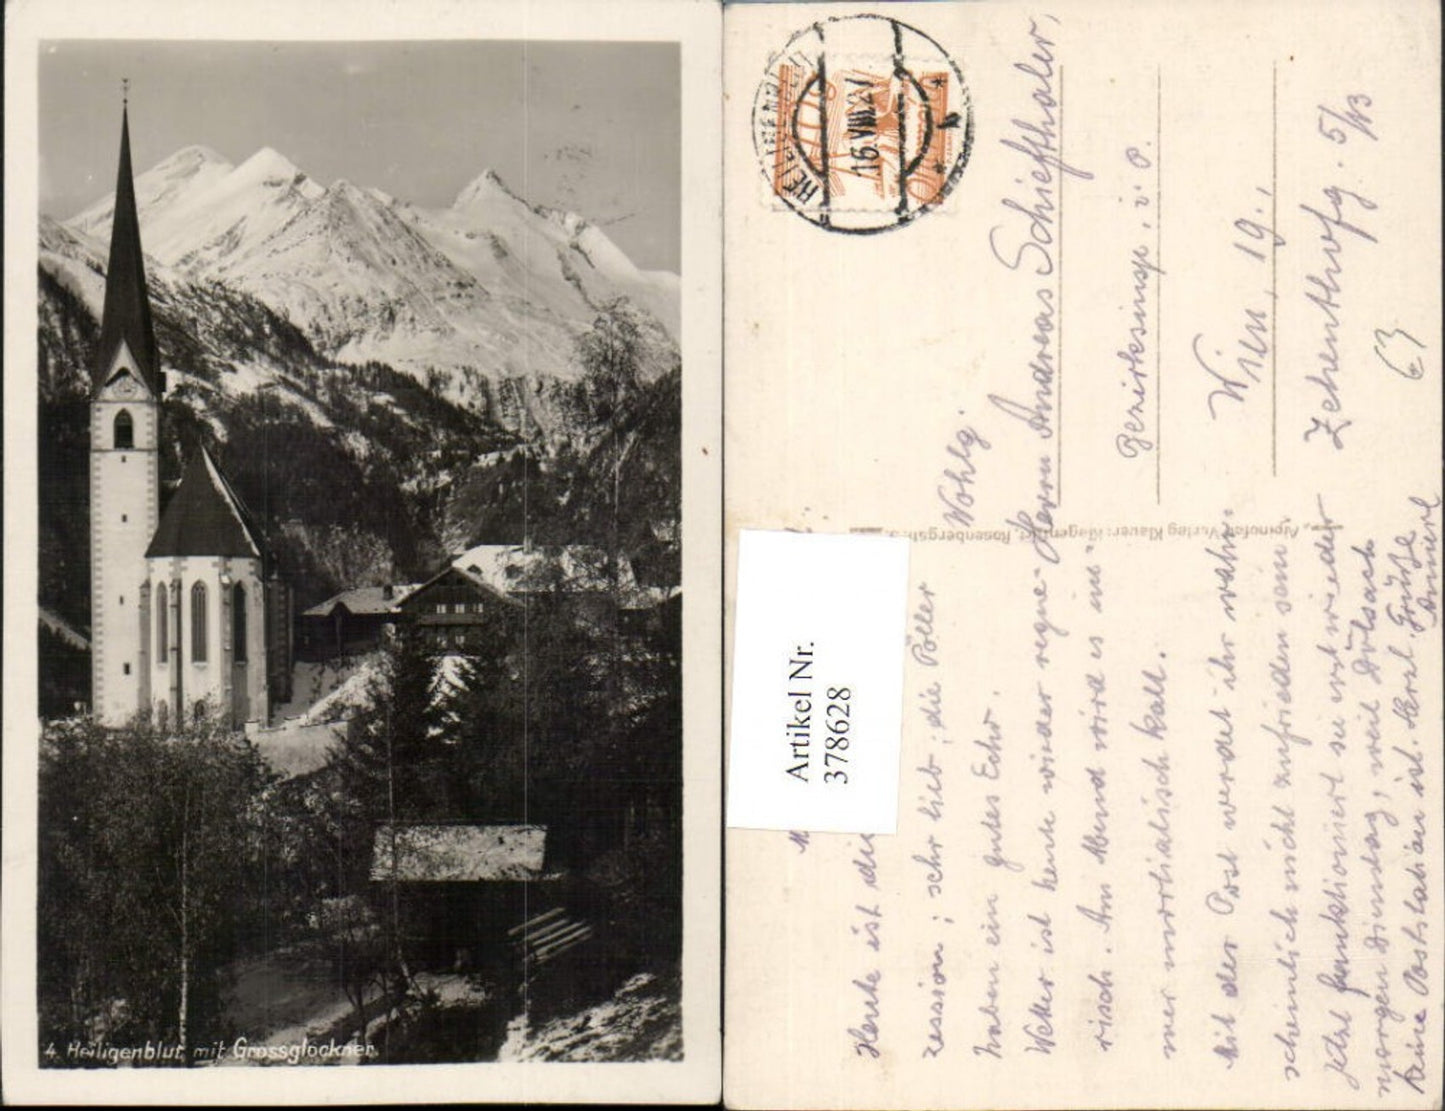 4. Heiligenblut mit Grossglockner.
HEILIGENBLUT
16.VIII.27
Artikel Nr.
3786628
Heute ist die
zession; sehr lieb, die Pöller
haben ein gutes Echo.
Wetter ist heute wieder regne-
risch. Am Abend wird es im-
mer mordialisch kalt.
Mit der Post werdet ihr wahr-
scheinlich nicht zufrieden sein
Jetzt funktioniert sie erst wieder
morgen Dienstag, weil Dölsach
keine Poststation ist. Herzl. Grüße
Wohlg.
Herrn Andreas Schiefthaler,
Bezirksinsp. i. P.
Wien, 19.,
Zehenthofg. 5/13
63
"Alpinofa" Verlag Klauer: Klagenfurt, Rosenbergstr.